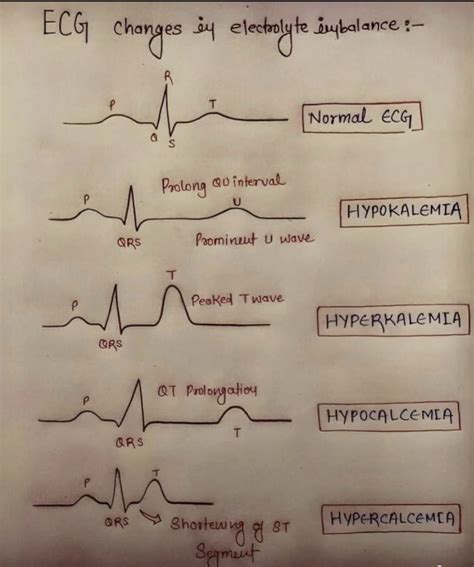 ECG changes in electrolyte imbalance :-
R
P
T
Q
S
Normal ECG
Prolong QU interval
P
U
HYPOKALEMIA
QRS
Prominent U wave
T
P
Peaked T wave
HYPERKALEMIA
QRS
P
QT Prolongation
HYPOCALCEMIA
QRS
T
P
T
QRS
Shortening of ST
Segment
HYPERCALCEMIA